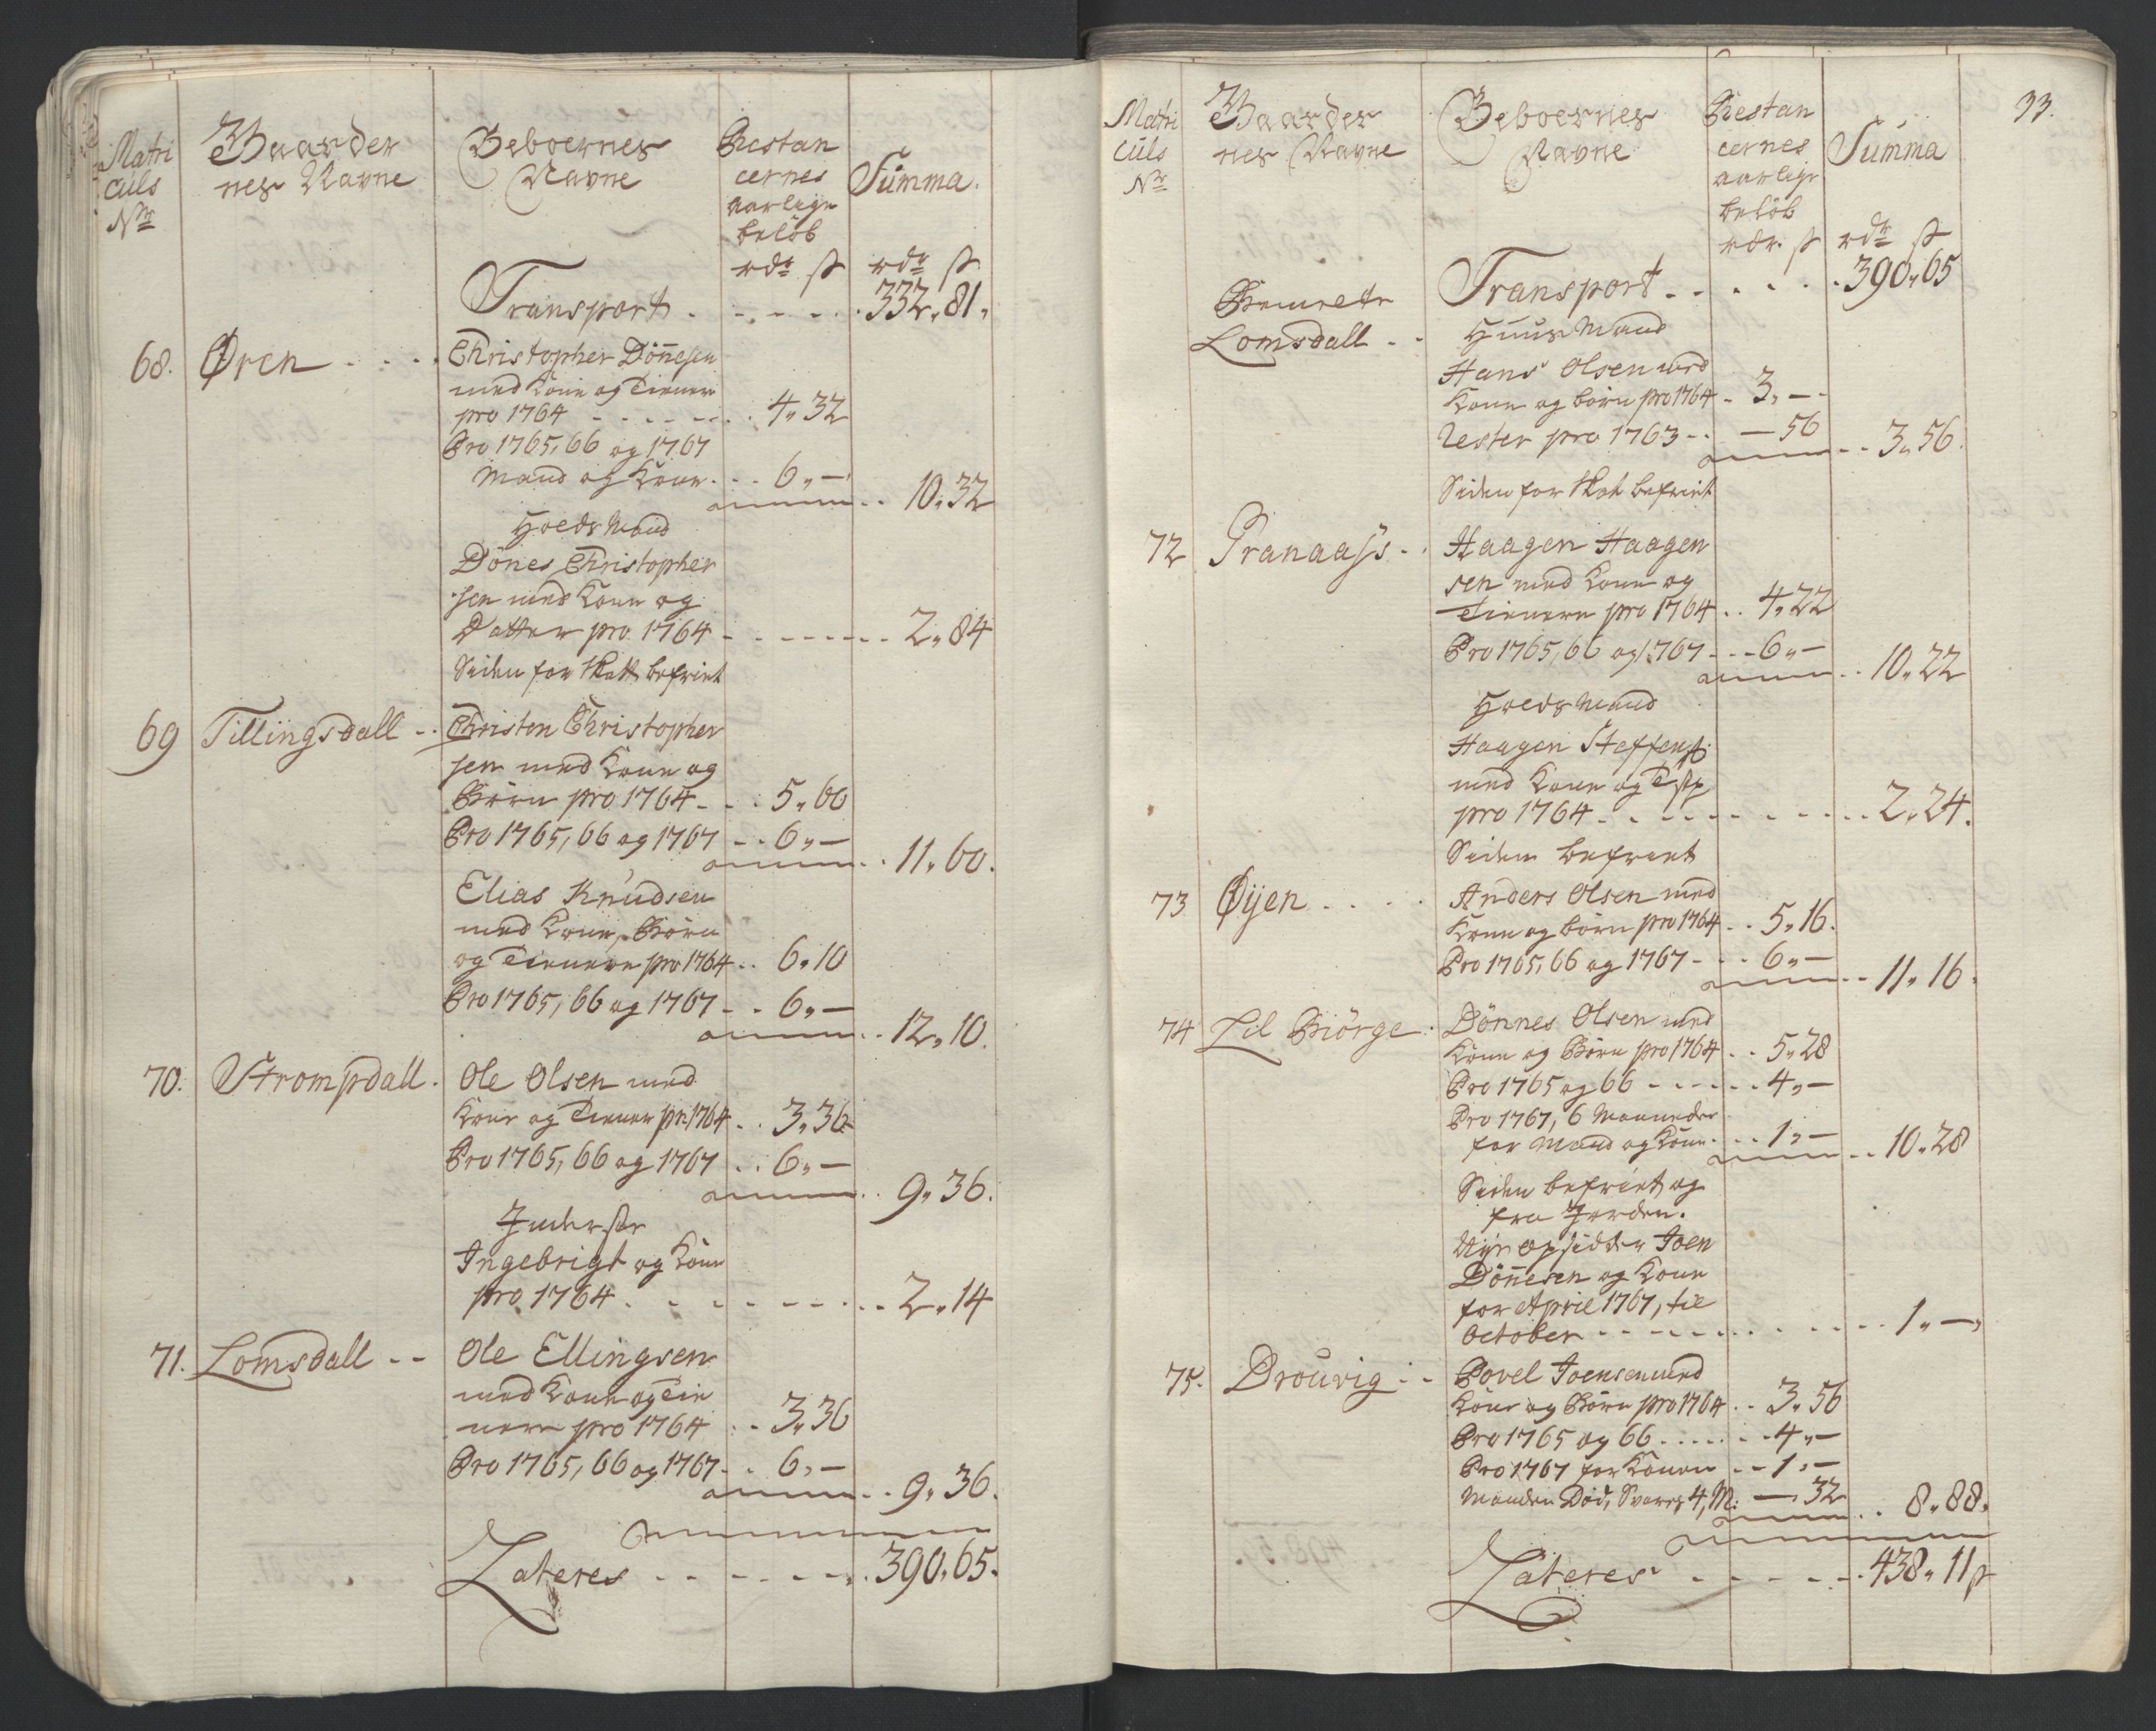 Matri
Culs
Nr
Gaarder
nes Navne
Beboernes
Navne
Restan
cernes
aarlige
beløb
rdr ß
Summa.
rdr ß
Transport . - . - . . . 332 „ 81 „
68. Øren - - - . Christopher Dönnesen
med Kone og Tiener
pro 1764 - - - - - - . 4 „ 32
Pro 1765, 66 og 1767
Mand og Kone . . . 6 „ —
10 „ 32
Hoeds Mand
Dönes Christopher
sen med Kone og
Datter pro 1764 - - - - - - - . . 2 „ 84
Siden for Skatt befriet
69 Tillingsdall - . Christen Christopher
sen med Kone og
Börn pro 1764 - - . 5 „ 60
Pro 1765, 66 og 1767 - . . 6 „ —
11 „ 60.
Elias Knudsen
med Kone, Börn
og Tienere pro 1764 . . 6 „ 10
Pro 1765, 66 og 1767 - . . 6 „ —
12 „ 10.
70. Strompdall . Ole Olsen med
Kone og Tiener pr. 1764 . . 3 „ 36
Pro 1765, 66 og 1767 . . 6 „ —
9 „ 36.
Inderste
Ingebrigt og Kone
pro 1764 . - - - - - - . . 2 „ 14
71. Lomsdall - - Ole Ellingsen
med Kone og Tie
nere pro 1764 . . 3 „ 36
Pro 1765, 66 og 1767 - . 6 „ —
9 „ 36.
Lateres - - - - - . . 390 „ 65.
33.
Matri
Culs
Nr
Gaarder
nes Navne
Beboernes
Navne
Restan
cernes
aarlige
beløb
rdr. ß
Summa
rdr ß
Transport . - . . . . 390 „ 65
Bemeldte
Lomsdall - -
Huus Mand
Hans Olsen med
Kone og börn pro 1764 - 3 „ —
Rester pro 1763 - . — 56
3 „ 56.
Siden for Skat befriet
72 Pranaass - . Haagen Haagen
sen med Kone og
Tienere pro 1764 . . 4 „ 22
Pro 1765, 66 og 1767 - - - 6 „ —
10 „ 22
Hoeds Mand
Haagen Steffens:
med Kone og
pro 1764 . - - - - - - - . . 2 „ 24.
Siden befriet
73 Øijen . . . . Anders Olsen med
Kone og börn pro 1764 . . 5 „ 16.
Pro 1765, 66 og 1767 - - . 6 „ —
11 „ 16.
74 Lil Biörge . Dönnes Olsen med
Kone og Börn pro 1764 . . 5 „ 28
Pro 1765 og 66 - - - - - . . 4 „ —
Pro 1767, 6 Maaneder
for Mand og Kone . . . 1 „ —
10 „ 28
Siden befriet og
fra Jorden.
Nye opsidder Joen
Dönnesen og Kone
for April 1767, til
October - - - - - - . . . . - - . 1 „ — „
75. Drouvig - - Povel Joensen med
Kone og Börn pro 1764 . . 3 „ 56
Pro 1765 og 66 . . . . . . 4 „ —
Pro 1767 for Konen - - 1 „ —
Manden Død, Svarer 4, M: — „ 32
8 „ 88.
Lateres . - - - - . . 438 „ 11 ß